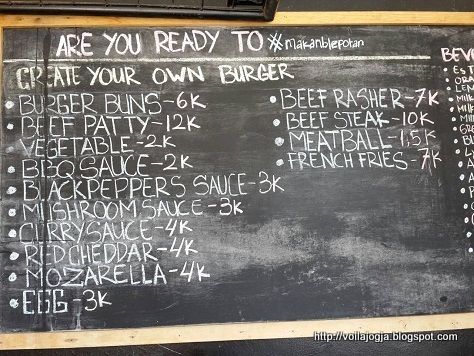 ARE YOU READY TO #makanblepotan
CREATE YOUR OWN BURGER
BURGER BUNS-6K
BEEF PATTY-12K
VEGETABLE-2K
BBQ SAUCE-2K
BLACKPEPPERS SAUCE-3K
MUSHROOM SAUCE-3K
CURRY SAUCE-4K
RED CHEDDAR-4K
MOZARELLA-4K
EGG-3K
BEEF RASHER-7K
BEEF STEAK-10K
MEATBALL-1,5K
FRENCH FRIES-7K
http://voilajogja.blogspot.com